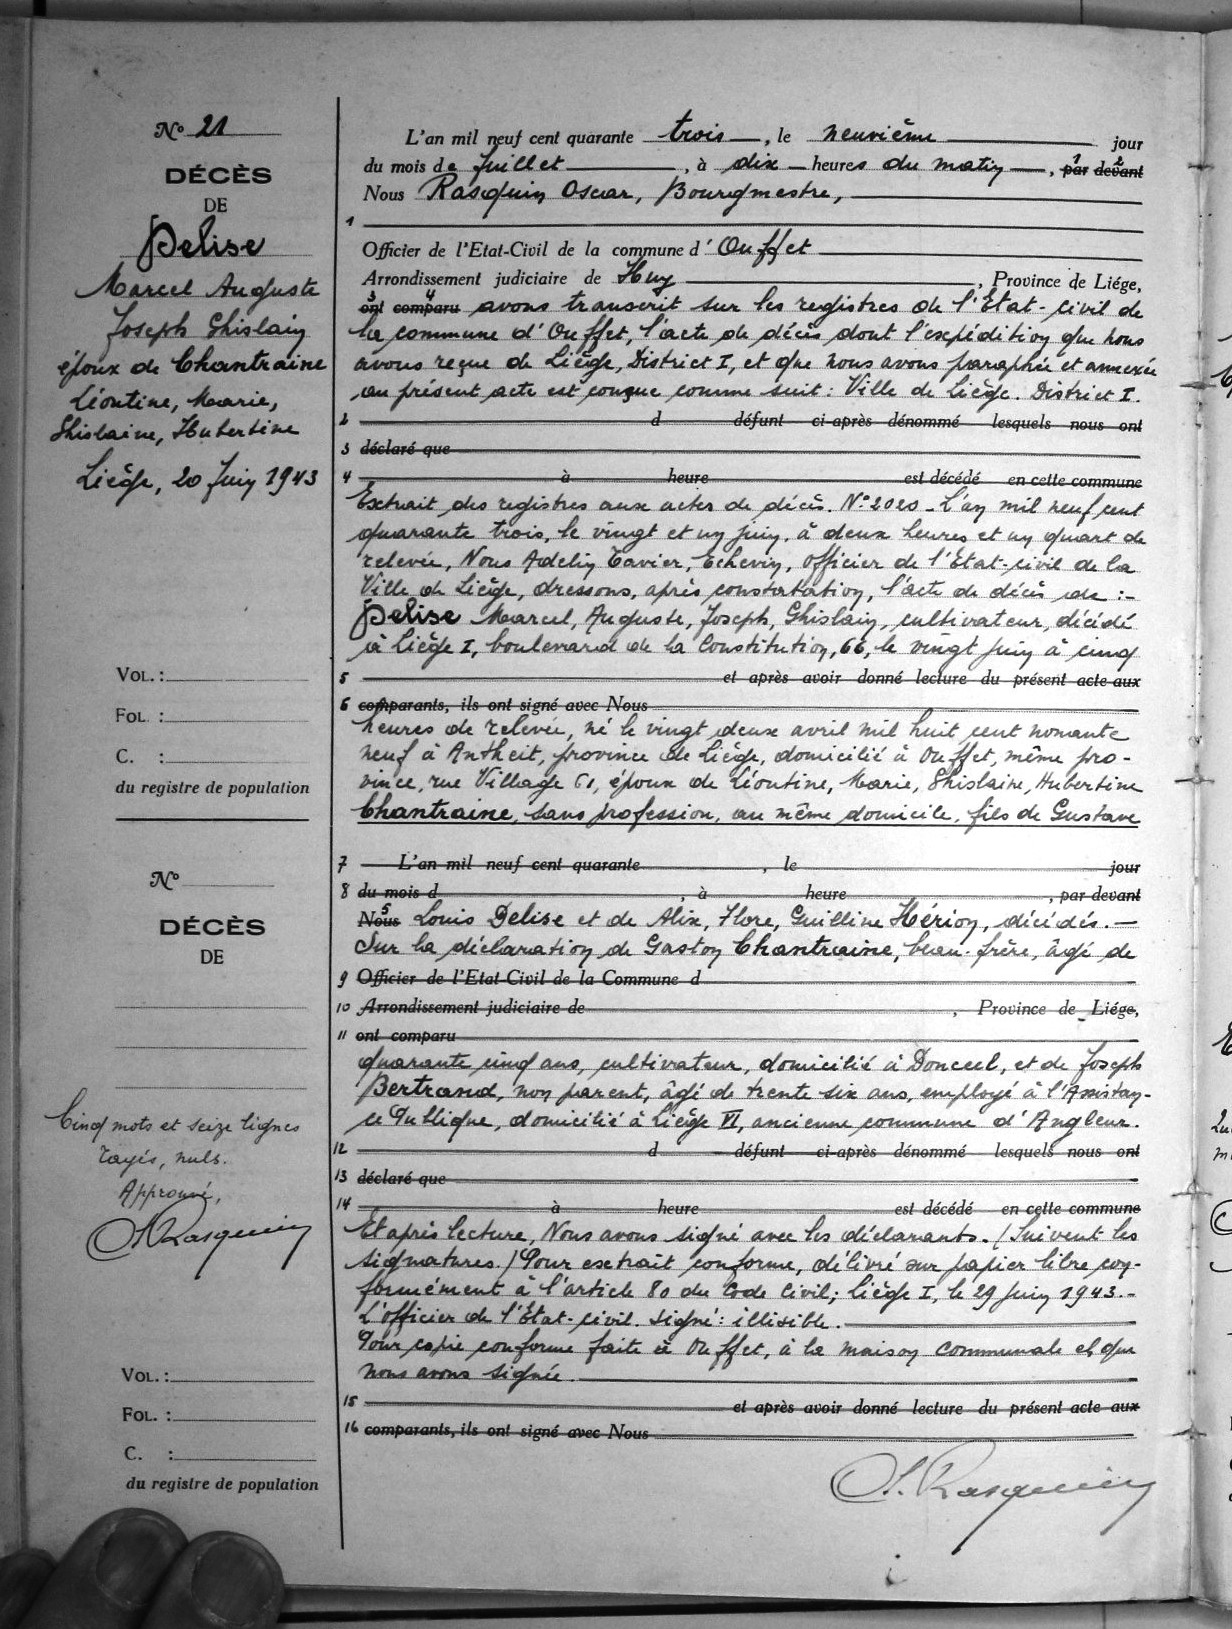 N° 21
DÉCÈS
DE
Delise
Marcel Auguste
Joseph Ghislain
époux de Chantraine
Léontine, Marie,
Ghislaine, Hubertine
Liège, 20 Juin 1943
VOL. :
FOL. :
C. :
du registre de population
N°
DÉCÈS
DE
Cinq mots et seize lignes
rayés, nuls.
Approuvé,
O. Rasquin
VOL. :
FOL. :
C. :
du registre de population
L'an mil neuf cent quarante trois, le neuvième jour
du mois de Juillet, à dix heures du matin, 1 par 2 devant
Nous Rasquin Oscar, Bourgmestre,
1
Officier de l'Etat-Civil de la commune d' Ouffet
Arrondissement judiciaire de Huy, Province de Liége,
3 ont 4 comparu avons transcrit sur les registres de l'Etat-civil de
la commune d'Ouffet, l'acte de décès dont l'expédition que nous
avons reçue de Liège, District I, et que nous avons paraphée et annexée
au présent acte est conçue comme suit : Ville de Liège. District I.
2 d défunt ci-après dénommé lesquels nous ont
3 déclaré que
4 à heure est décédé en cette commune
Extrait des registres aux actes de décès. N° 2020 - L'an mil neuf cent
quarante trois, le vingt et un juin, à deux heures et un quart de
relevée, Nous Adelin Tavier, Echevin, officier de l'Etat-civil de la
Ville de Liège, dressons, après constatation, l'acte de décès de :-
Delise Marcel, Auguste, Joseph, Ghislain, cultivateur, décédé
à Liège I, boulevard de la Constitution, 66, le vingt juin à cinq
5 et après avoir donné lecture du présent acte aux
6 comparants, ils ont signé avec Nous
heures de relevée, né le vingt deux avril mil huit cent nonante
neuf à Antheit, province de Liège, domicilié à Ouffet, même pro-
vince, rue Village 61, époux de Léontine, Marie, Ghislaine, Hubertine
Chantraine, sans profession, au même domicile, fils de Gustave
7 L'an mil neuf cent quarante, le jour
8 du mois d, à heure, par devant
5 Nous Louis Delise et de Alix, Flore, Guilline Hérion, décédés. —
Sur la déclaration de Gaston Chantraine, beau-frère, âgé de
9 Officier de l'Etat-Civil de la Commune d
10 Arrondissement judiciaire de, Province de Liége,
11 ont comparu
quarante cinq ans, cultivateur, domicilié à Donceel, et de Joseph
Bertrand, non parent, âgé de trente six ans, employé à l'Assistan-
ce Publique, domicilié à Liège VI, ancienne commune d'Angleur.
12 d défunt ci-après dénommé lesquels nous ont
13 déclaré que
14 à heure est décédé en cette commune
Et après lecture, Nous avons signé avec les déclarants. (Suivent les
signatures.) Pour extrait conforme, délivré sur papier libre con-
formément à l'article 80 du Code Civil; Liège I, le 29 Juin 1943.-
L'officier de l'Etat-civil. Signé : illisible.
Pour copie conforme faite à Ouffet, à la maison communale et que
nous avons signée.
15 et après avoir donné lecture du présent acte aux
16 comparants, ils ont signé avec Nous
O. Rasquin